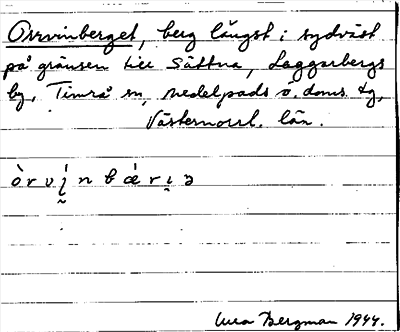 Orrvinberget, berg längst i sydväst
på gränsen till Sättna, Laggarbergs
by, Timrå sn, Medelpads ö. doms. tg,
Västernorrl. län.
òrvḭ́nbǽrı̣ə
Bergman 1944.